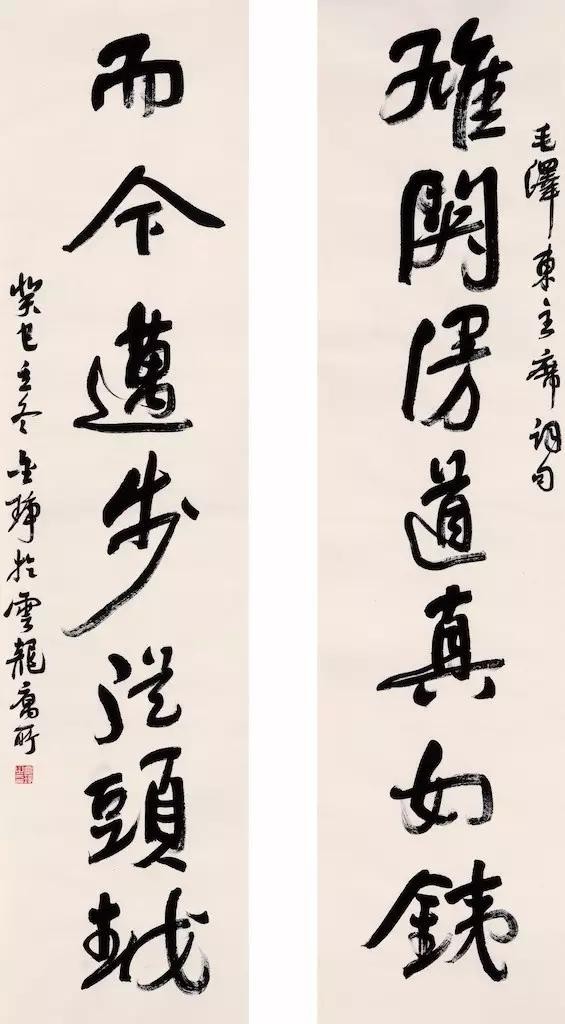 毛澤東主席詞句
雄關漫道真如銕
而今邁步從頭越
癸巳冬於雲龍寓所